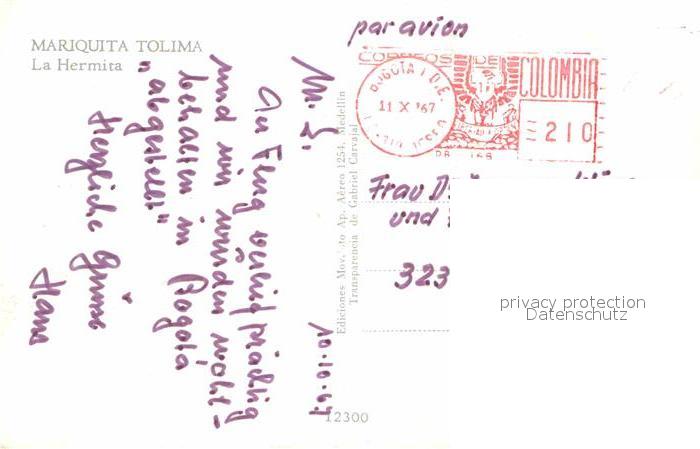 MARIQUITA TOLIMA
La Hermita
par avion
CORREOS DE
COLOMBIA
BOGOTA 1 D.E.
11 X '67
210
M. L.
10.10.67
Der Flug verlief prächtig
und wir wurden wohl-
behalten in Bogota
"abgestellt"
Herzliche Grüsse
Hans
Ediciones Mov. to Ap. Aéreo 1254, Medellin
Transparencia de Gabriel Carvajal
Frau D
und
323
privacy protection
Datenschutz
12300